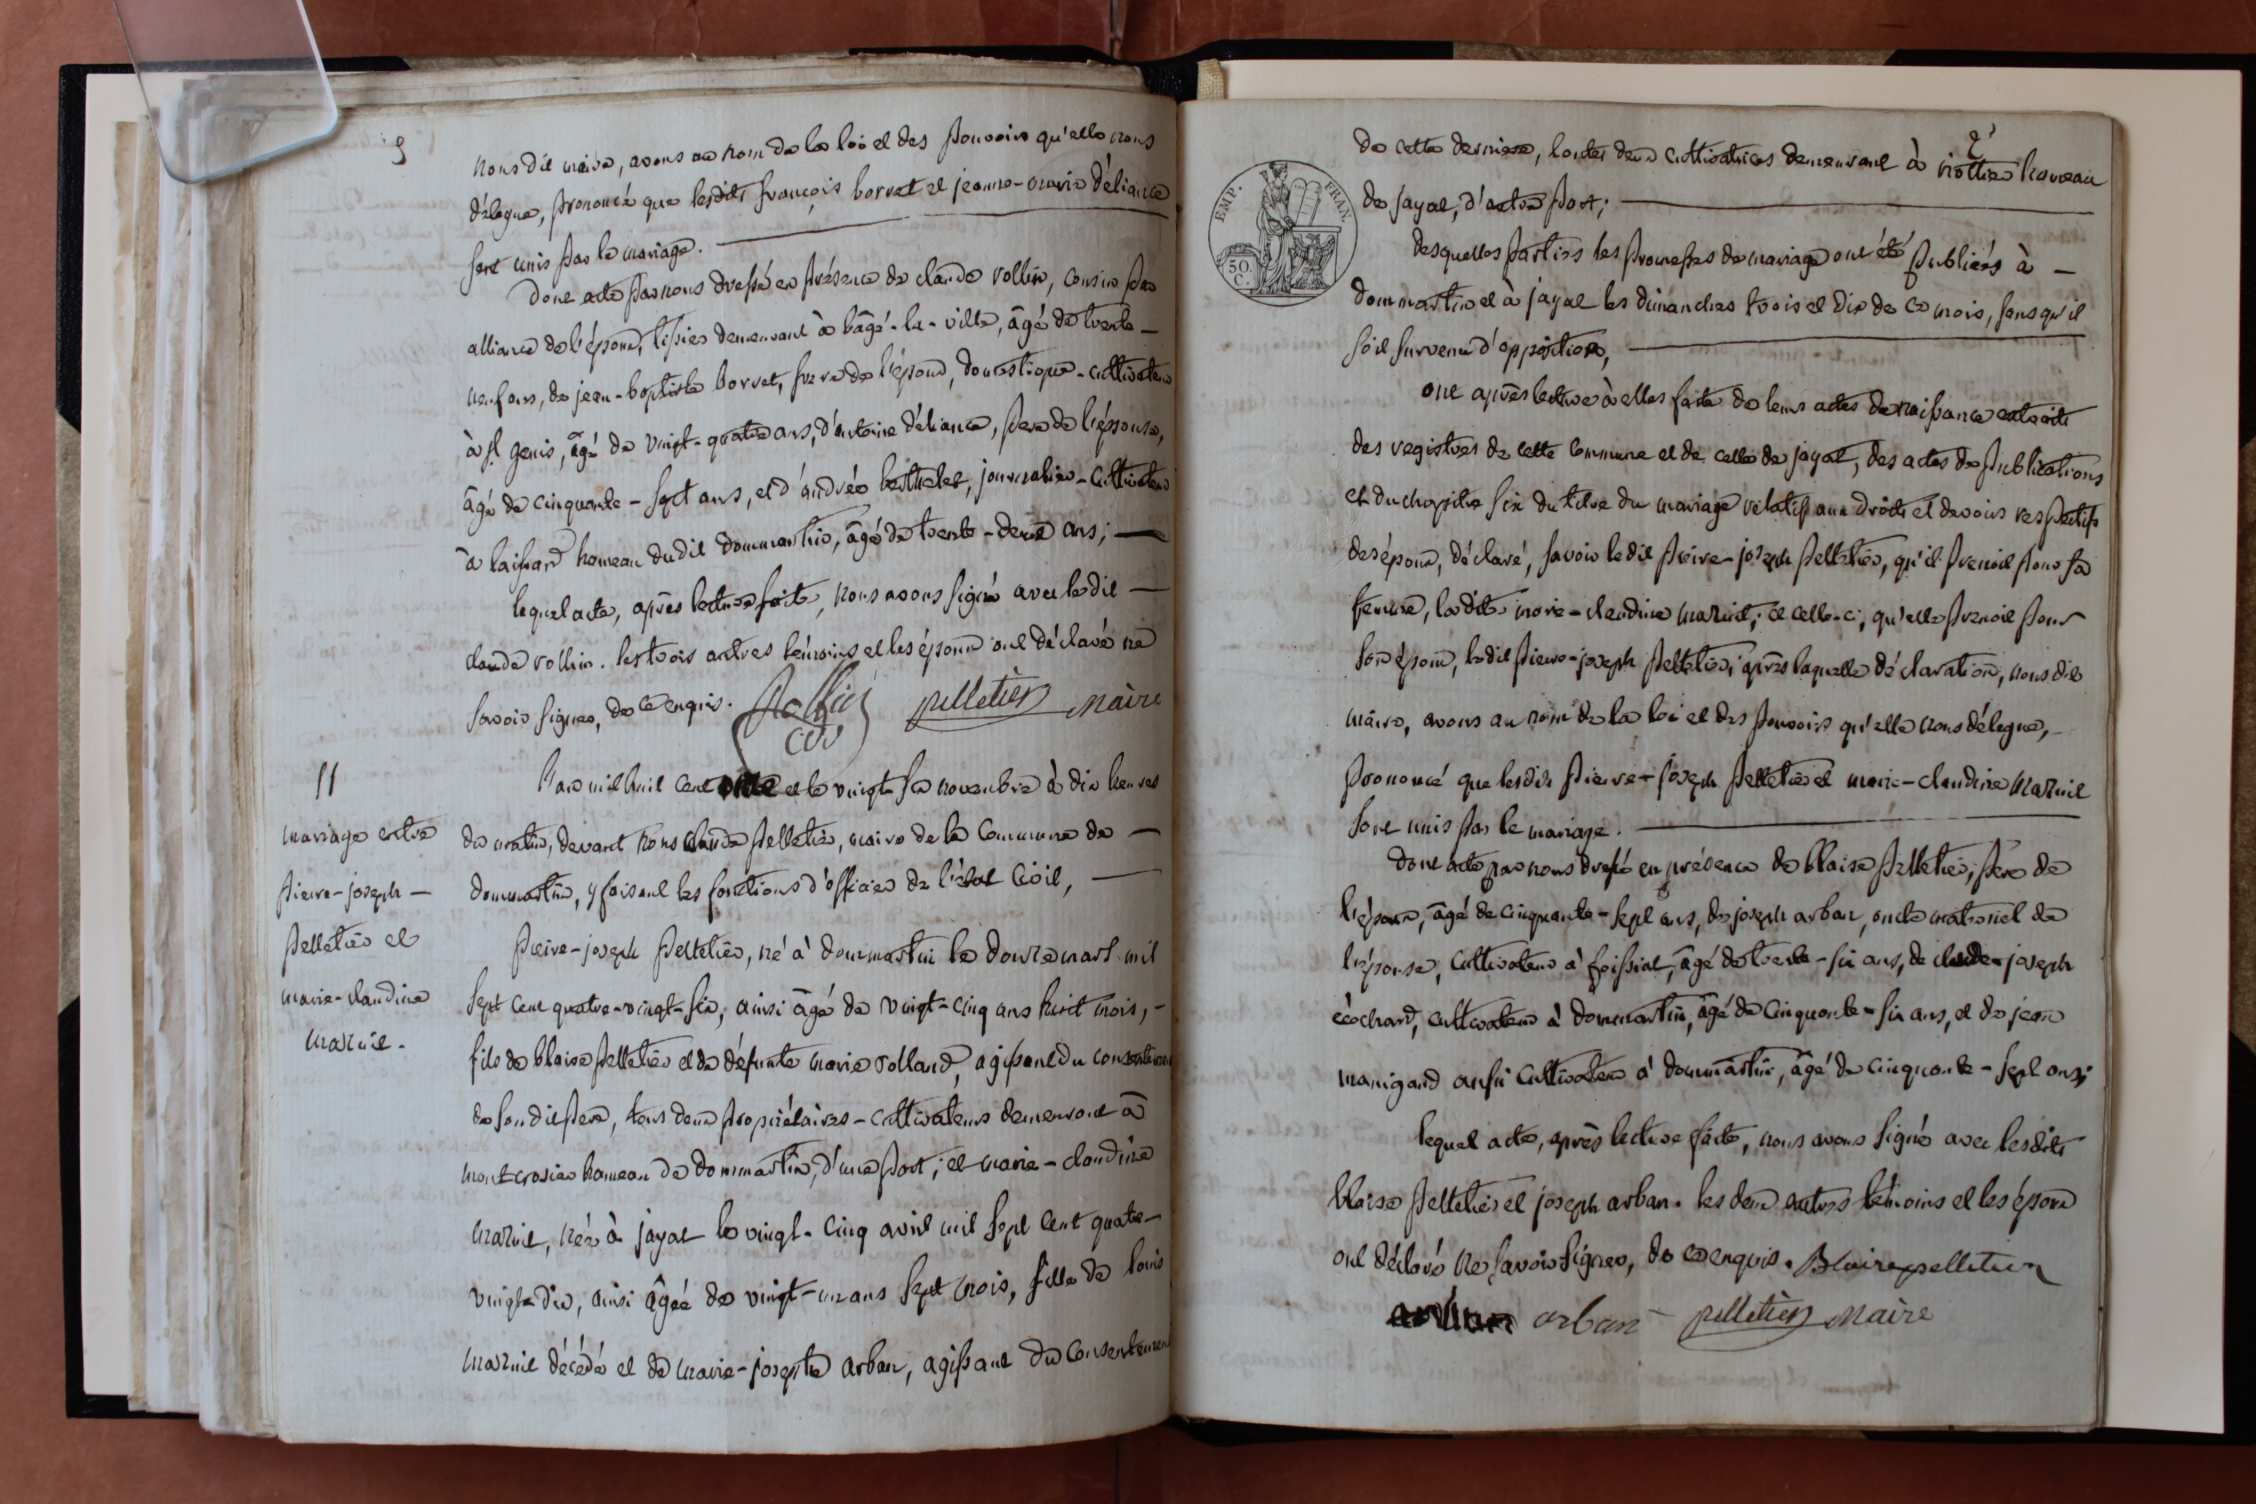 nous dit maire, avons au nom de la loi et des pouvoirs qu'elle nous
délegue, prononcé que lesdits françois borret et jeanne-marie déliance
sont unis par le mariage.
Dont acte par nous dressé en présence de claude rollin, cousin par
alliance de l'époux, tissier demeurant à bâgé-la-ville, âgé de trente-
neuf ans, de jean-baptiste borret, frere de l'époux, domestique-cultivateur
à st genis, âgé de vingt-quatre ans, d'antoine déliance, pere de l'épouse,
âgé de cinquante-sept ans, et d'andréé berthelet, journalier-cultivateur
à laissard hameau dudit dommartin, âgé de trente-deux ans;
lequel acte, après lecture faite, nous avons signé avec ledit
claude rollin. les trois autres témoins et les époux ont déclaré ne
savoir signer, de ce enquis. Rollin pelletier maire
11
mariage entre
pierre-joseph
pelletier et
marie-claudine
maruil.
L'an mil huit cent onze et le vingt six novembre à dix heures
du matin, devant nous claude pelletier, maire de la commune de
dommartin, y faisant les fonctions d'officier de l'état civil,
pierre-joseph pelletier, né à dommartin le douze mars mil
sept cent quatre-vingt-six, ainsi âgé de vingt-cinq ans huit mois,
fils de blaise pelletier et de défunte marie rolland, agissant du consentement
de son dit pere, tous deux propriétaires-cultivateurs demeurant à
montcrosier hameau de dommartin, d'une part; et marie-claudine
maruil, née à jayat le vingt-cinq avril mil sept cent quatre-
vingt-dix, ainsi âgée de vingt-un ans sept mois, fille de louis
maruil décédé et de marie-josephe arban, agissant du consentement
2
de cette derniere, toutes deux cultivatrices demeurant à hameau
de jayat, d'autre part;
EMP. FRAN.
50. C.
desquelles parties les promesses de mariage ont été publiées à
dommartin et à jayat les dimanches trois et dix de ce mois, sans qu'il
soit survenu d'opposition,
ont après lecture à elles faite de leurs actes de naissance extraits
des registres de cette commune et de celle de jayat, des actes de publications
et du chapitre six du titre du mariage relatif aux droits et devoirs respectifs
des époux, déclaré, savoir ledit pierre-joseph pelletier, qu'il prenoit pour sa
femme, ladite marie-claudine maruil, et celle-ci, qu'elle prenoit pour
son époux, ledit pierre-joseph pelletier; après laquelle déclaration, nous dit
maire, avons au nom de la loi et des pouvoirs qu'elle nous délegue,
prononcé que lesdits pierre-joseph pelletier et marie-claudine maruil
sont unis par le mariage.
dont acte par nous dressé en présence de blaise pelletier, pere de
l'époux, âgé de cinquante-sept ans, de joseph arban, oncle maternel de
l'épouse, cultivateur à foissiat, âgé de trente-six ans, de claude-joseph
écochard, cultivateur à dommartin, âgé de cinquante-six ans, et de jean
manigand aussi cultivateur à dommartin, âgé de cinquante-sept ans;
lequel acte, après lecture faite, nous avons signé avec lesdits
blaise pelletier et joseph arban. les deux autres témoins et les époux
ont déclaré ne savoir signer, de ce enquis. Blaise pelletier
arban pelletier maire